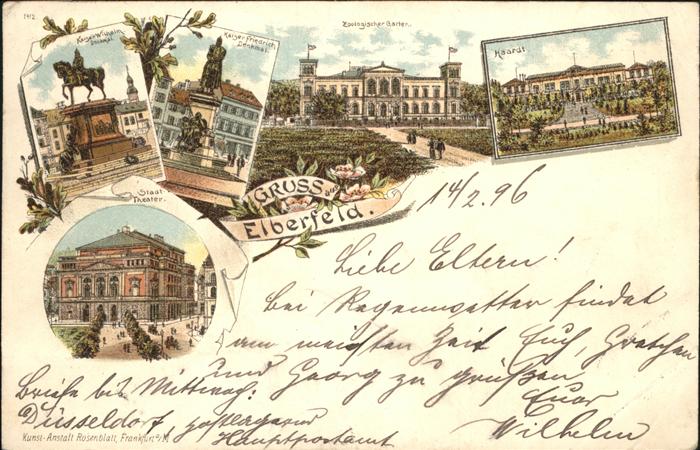 1412.
Kaiser Wilhelm
Denkmal.
Kaiser Friedrich
Denkmal.
Zoologischer Garten.
Haardt.
Stadt-
Theater.
GRUSS aus
Elberfeld.
14/2.96
Liebe Eltern!
Bei Regenwetter findet
am meisten Zeit Euch, Gretchen
und Georg zu grüßen
Euer
Wilhelm
Briefe bis Mittwoch:
Düsseldorf postlagernd
Hauptpostamt
Kunst-Anstalt Rosenblatt, Frankfurt a/M.